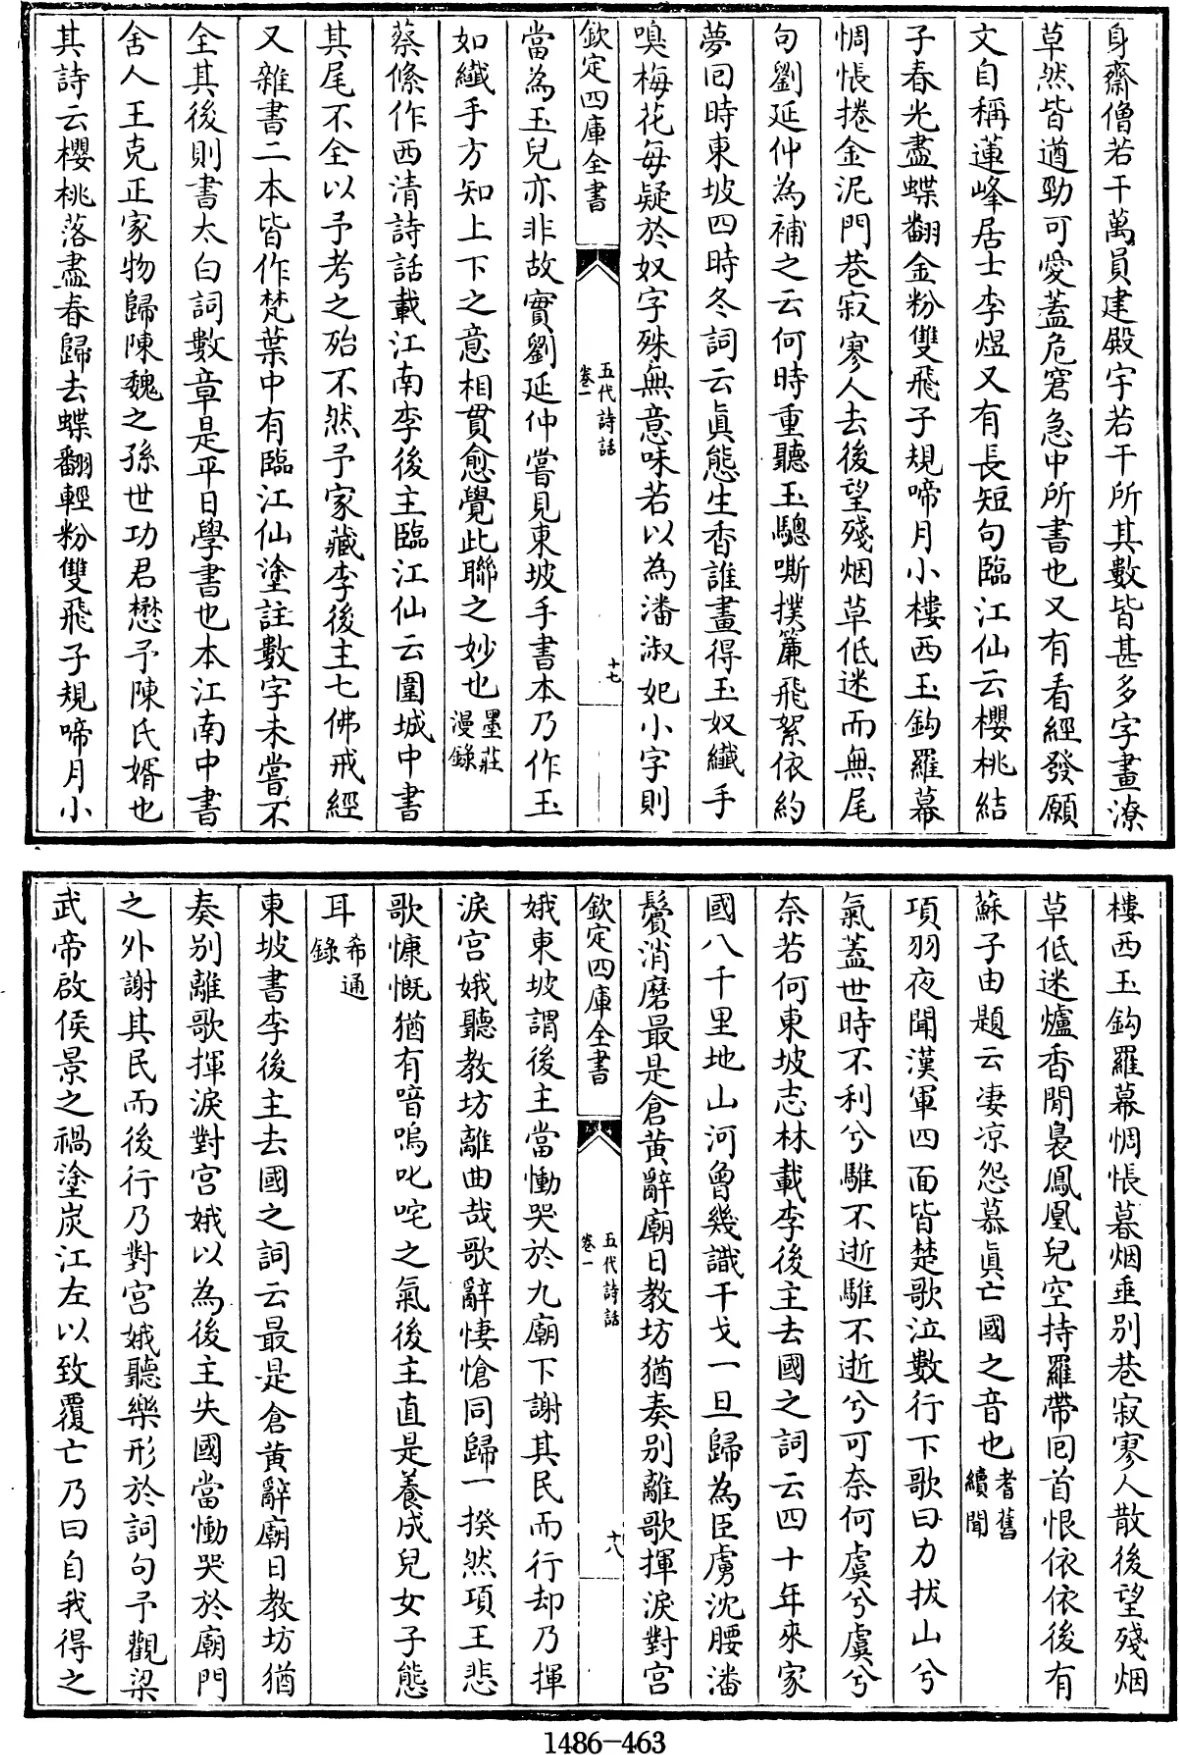 身齋僧若干萬員建殿宇若干所其數皆甚多字畫潦
草然皆遒勁可愛蓋危窘急中所書也又有看經發願
文自稱蓮峰居士李煜又有長短句臨江仙云櫻桃結
子春光盡蝶翻金粉雙飛子規啼月小樓西玉鈎羅幕
惆悵捲金泥門巷寂寥人去後望殘烟草低迷而無尾
句劉延仲為補之云何時重聽玉驄嘶撲簾飛絮依約
夢回時東坡四時冬詞云眞態生香誰畫得玉奴纖手
嗅梅花每疑於奴字殊無意味若以為潘淑妃小字則
欽定四庫全書
五代詩話
卷一
十七
當為玉兒亦非故實劉延仲嘗見東坡手書本乃作玉
如纖手方知上下之意相貫愈覺此聯之妙也墨莊
漫錄
蔡絛作西清詩話載江南李後主臨江仙云圍城中書
其尾不全以予考之殆不然予家藏李後主七佛戒經
又雜書二本皆作梵葉中有臨江仙塗註數字未嘗不
全其後則書太白詞數章是平日學書也本江南中書
舍人王克正家物歸陳魏之孫世功君懋予陳氏婿也
其詩云櫻桃落盡春歸去蝶翻輕粉雙飛子規啼月小
樓西玉鈎羅幕惆悵暮烟垂別巷寂寥人散後望殘烟
草低迷爐香閒裊鳳凰兒空持羅帶回首恨依依後有
蘇子由題云凄凉怨慕眞亡國之音也耆舊
續聞
項羽夜聞漢軍四面皆楚歌泣數行下歌曰力拔山兮
氣蓋世時不利兮騅不逝騅不逝兮可奈何虞兮虞兮
奈若何東坡志林載李後主去國之詞云四十年來家
國八千里地山河曾幾識干戈一旦歸為臣虜沈腰潘
鬢消磨最是倉黄辭廟日教坊猶奏别離歌揮淚對宮
欽定四庫全書
五代詩話
卷一
十八
娥東坡謂後主當慟哭於九廟下謝其民而行却乃揮
淚宮娥聽教坊離曲哉歌辭悽愴同歸一揆然項王悲
歌慷慨猶有喑嗚叱咤之氣後主直是養成兒女子態
耳希通
錄
東坡書李後主去國之詞云最是倉黄辭廟日教坊猶
奏别離歌揮淚對宮娥以為後主失國當慟哭於廟門
之外謝其民而後行乃對宮娥聽樂形於詞句予觀梁
武帝啟侯景之禍塗炭江左以致覆亡乃曰自我得之
1486-463